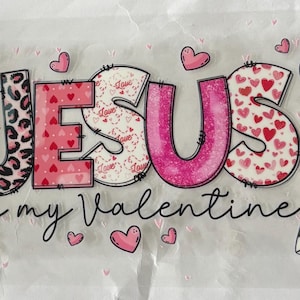 JESUS
my Valentine